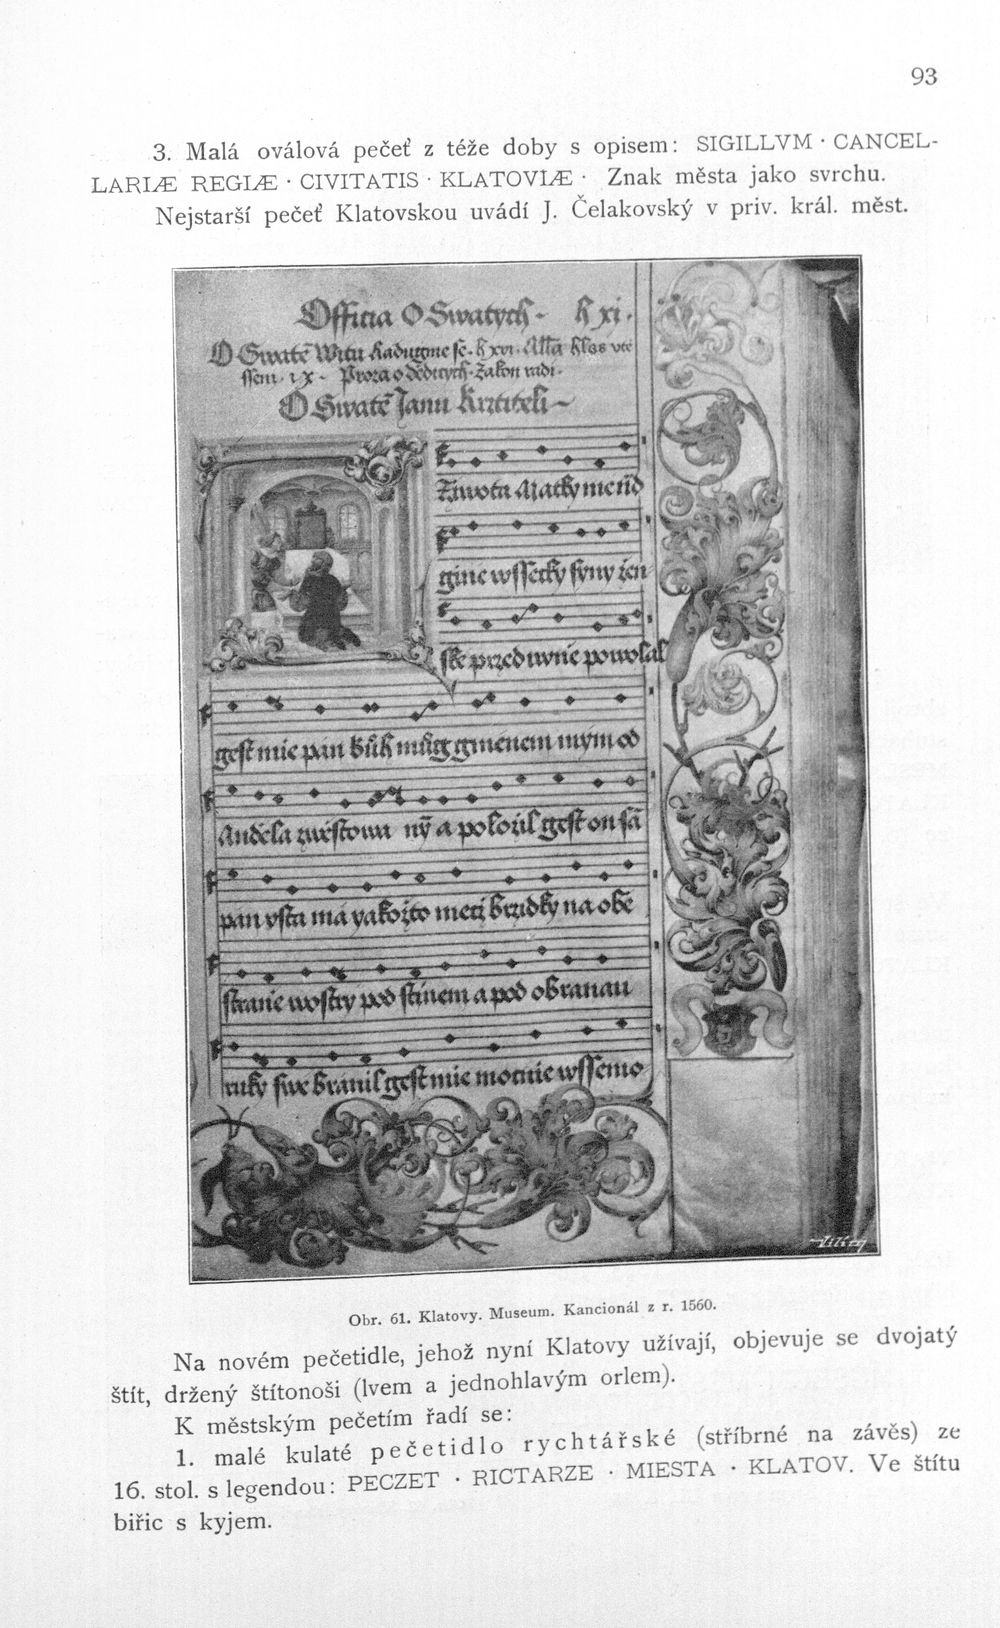 93
3. Malá oválová pečeť z téže doby s opisem: SIGILLVM · CANCEL-
LARIÆ REGIÆ · CIVITATIS · KLATOVIÆ · Znak města jako svrchu.
Nejstarší pečeť Klatovskou uvádí J. Čelakovský v priv. král. měst.
Officia O Swatych · h xi ·
O Swate Janu Krztiteli
Ziwota Matky me
gine wssecky syny zen
ske przed uwnie powolal
gest mie pan buoh muog gmenem mym od
Andela a polozil gest on
pan usta ma yakozto mecz brzidky na obe
stranie wostry pod stinem a pod obranau
ruky swe branil gest mie mocnie wssemo
Obr. 61. Klatovy. Museum. Kancionál z r. 1560.
Na novém pečetidle, jehož nyní Klatovy užívají, objevuje se dvojatý
štít, držený štítonoši (lvem a jednohlavým orlem).
K městským pečetím řadí se:
1. malé kulaté pečetidlo rychtářské (stříbrné na závěs) ze
16. stol. s legendou: PECZET · RICTARZE · MIESTA · KLATOV. Ve štítu
biřic s kyjem.